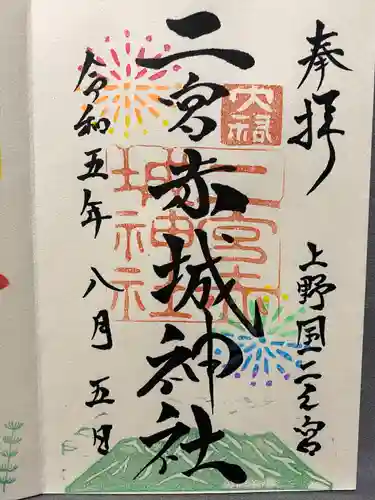 奉拝
上野国二之宮
二宮赤城神社
令和五年八月五日
二宮赤
城神社